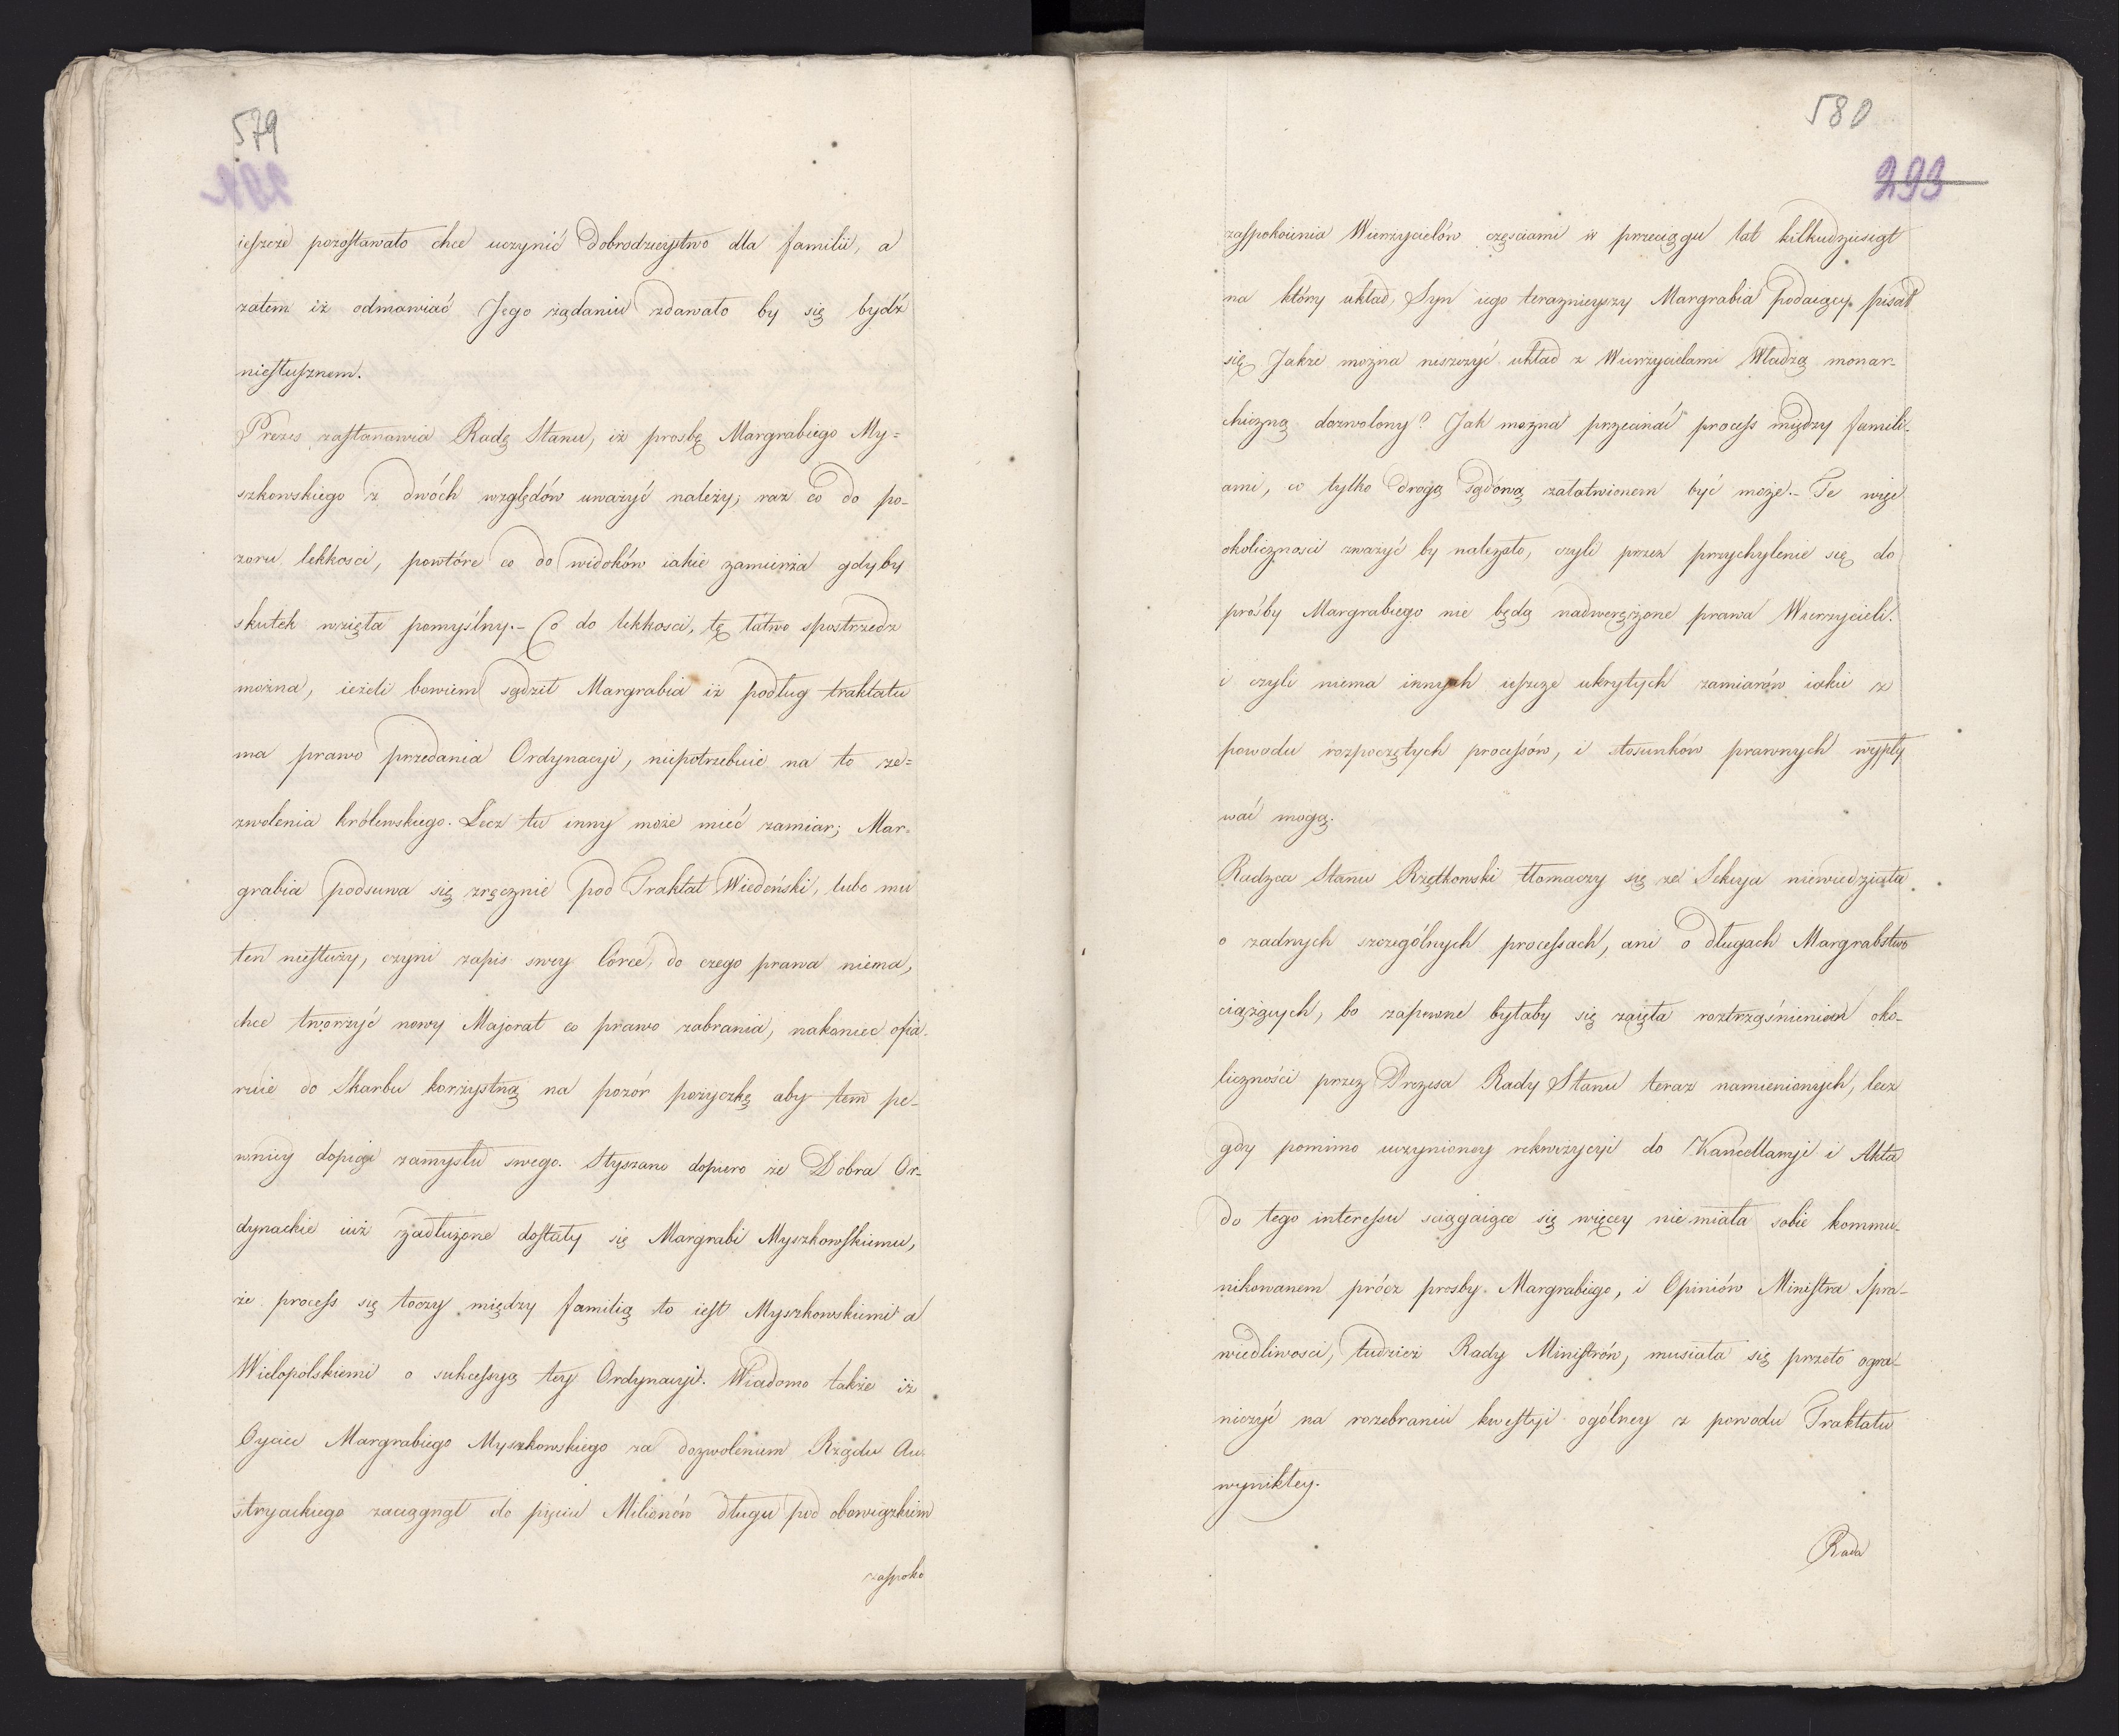 579
292
ieszcze pozostawało chce uczynić Dobrodzieystwo dla familii, a
zatem iż odmawiać Jego żądaniu zdawało by się bydź
niesłusznem.
Prezes zastanawia Radę Stanu, iż prosbę Margrabiego My=
szkowskiego z dwóch względów uważyć należy; raz co do po-
zoru lekkosci, powtóre co do widoków iakie zamierza gdyby
skutek wzięła pomyślny.- Co do lekkosci, tę łatwo spostrzedz
można, ieżeli bowiem sądził Margrabia iż podług traktatu
ma prawo przedania Ordynacyi, niepotrzebuie na to ze=
zwolenia królewskiego. Lecz tu inny może mieć zamiar; Mar-
grabia podsuwa się zręcznie pod Traktat Wiedeński, lubo mu
ten niesłuży, czyni zapis swey Córce, do czego prawa niema,
chce tworzyć nowy Majorat co prawo zabrania, nakoniec ofia-
ruie do Skarbu korzystną na pozór pożyczkę aby tem pe-
wniey dopiąć zamysłu swego. Słyszano dopiero że Dobra Or-
dynackie iuż zadłużone dostały się Margrabi Myszkowskiemu,
że process się toczy między familią to iest Myszkowskiemi a
Wielopolskiemi o sukcessyą tey Ordynacyi. Wiadomo także iż
Oyciec Margrabiego Myszkowskiego za dozwoleniem Rządu Au-
stryackiego zaciągnął do pięciu Milionów długu pod obowiązkiem
zaspoko
580
293
zaspokoienia Wierzycielów częsciami w przeciągu lat kilkudziesiąt
na który układ, Syn iego teraznieyszy Margrabia podaiący pisał
się. Jakże można niszczyć układ z Wierzycielami Władzą monar-
chiczną dozwolony? Jak można przecinać process między famili-
ami, co tylko drogą sądową załatwionem być może.- Te więc
okoliczności zważyć by należało, czyli przez przychylenie się do
prośby Margrabiego nie będą nadwerężone prawa Wierzycieli.
i czyli niema innych ieszcze ukrytych zamiarów iakie z
powodu rozpoczętych processów, i stosunków prawnych wypły
wać mogą.
Radzca Stanu Rzętkowski tłomaczy się że Sekcyja niewiedziała
o żadnych szczególnych processach, ani o długach Margrabstwo
ciążących, bo zapewne byłaby się zaięła roztrząśnieniem oko-
liczności przez Prezesa Rady Stanu teraz namienionych, lecz
gdy pomimo uczynioney rekwizycyi do Kancellaryi i Akta
do tego interessu sciągaiące się więcey nie miała sobie kommu-
nikowanem prócz prosby Margrabiego, i Opiniów Ministra Spra-
wiedliwosci, tudzież Rady Ministrów, musiała się przeto ogra-
niczyć na rozebraniu kwestyi ogólney z powodu Traktatu
wynikłey.
Rada